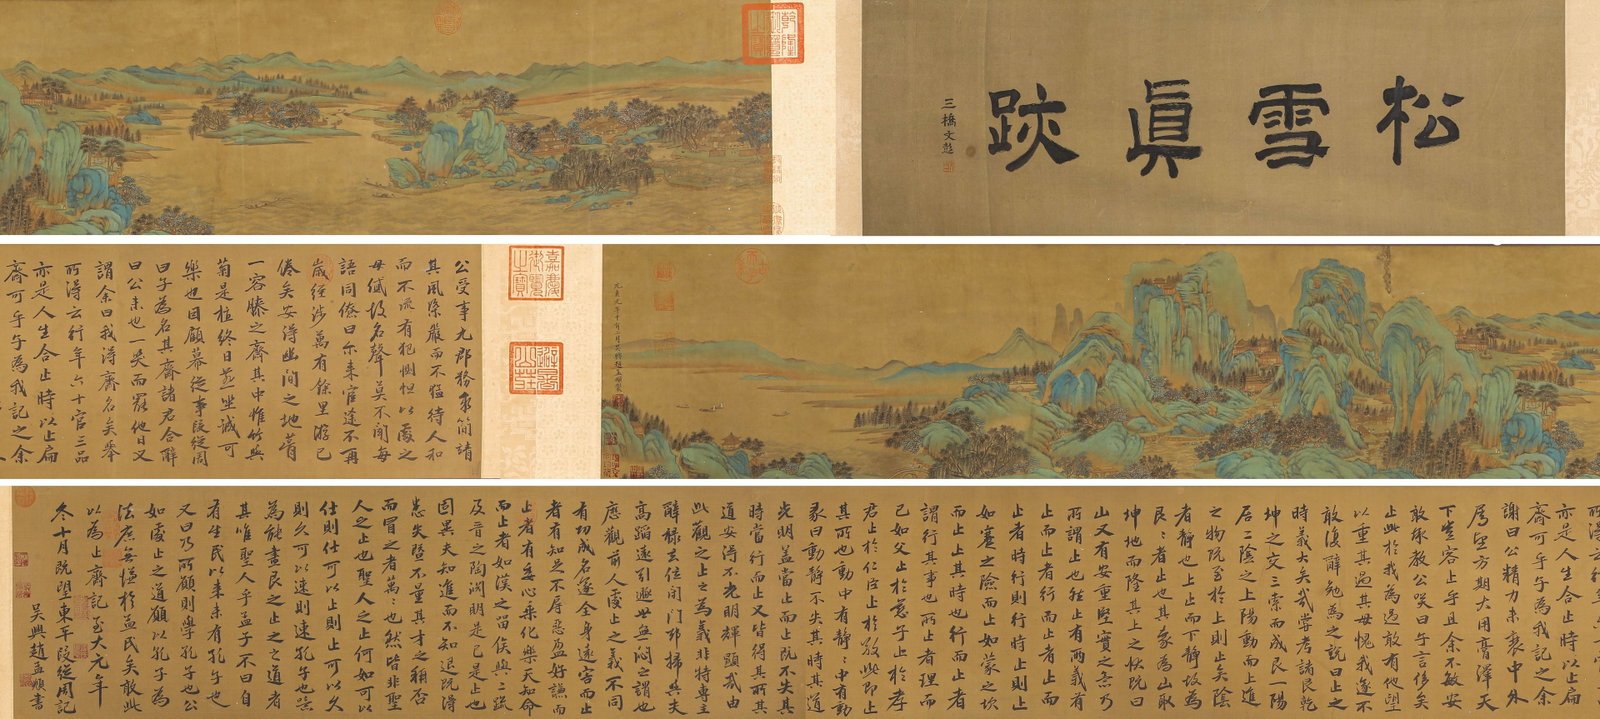 松雪眞跡
三橋文彭
嘉慶御覽之寶
避暑山莊
公受事尤郡務象簡靖
其風係嚴而不猛待人和
而不流有犯惻怛以處之
毋儀故名聲莫不聞每
語同僚曰尓来宦逢不再
歲經涉萬有餘里游已
倦矣安得幽閒之地葺
一容膝之齋其中惟竹與
菊是植終日燕坐誠可
樂也因顧幕從事段從周
曰子為名其齋諸君合辭
曰公未也一笑而罷他日又
謂余曰我得齋名矣
所得云行年六十宦三品
亦是人生合止時以止扁
齋可乎子為我記之余
亦是人生合止時以止扁
齋可乎子為我記之余
謝曰公精力未衰中外
屬望方期大用膏澤天
下豈容上乎且余不敏安
敢承教公咲曰子言侈矣
止此於我為過敢有他望
以重其過其毋愧我遂不
敢復辭勉為之説曰止之
時義大矣哉嘗考諸艮乾
坤之交三索而成艮一陽
居二陰之上陽動而上進
之物既至於上則止矣陰
者靜也上止而下靜故為
艮〻者止也其象為山取
坤地而隆其上之狀既曰
山又有安重堅實之意乃
所謂止也然止有兩義有
止而止者行而止者止而
止者時行則行時止則止
如蹇之險而止如蒙之坎
而止止其時也行而止者
謂行其事也所止者理而
已如父止於慈子止於孝
君止於仁臣止於敬此即止
其所也動中有靜〻中有動
彖曰動靜不失其時其道
光明蓋當止而止既不失其
時當行而止又皆得其所其
道安得不光明輝顯哉由
此觀之止之為義非特專主
解祿去位閉門却掃與夫
高蹈遠引遯世無悶之謂也
應觀前人處止之義不同
有功成名遂全身遠害而止
者有知足不辱惡盈好謙而
止者有委心乘化樂天知命
而止者如漢之留侯與二疏
及晉之陶淵明是已是止也
固異夫知進而不知退既得
患失啓不重其才之稱否
而冒之者萬〻也然皆非聖
人之止也聖人之止何如可以
仕則仕可以止則止可以久
則久可以速則速孔子也
為能盡艮之止之道者
其唯聖人乎孟子不曰自
有生民以来未有孔子也
又曰乃所願則學孔子也公
如處止之道願以孔子為
法庶無愧於益民矣敢此
以為止齋記至大元年
冬十月既望東平段從周記
吳興趙孟頫書